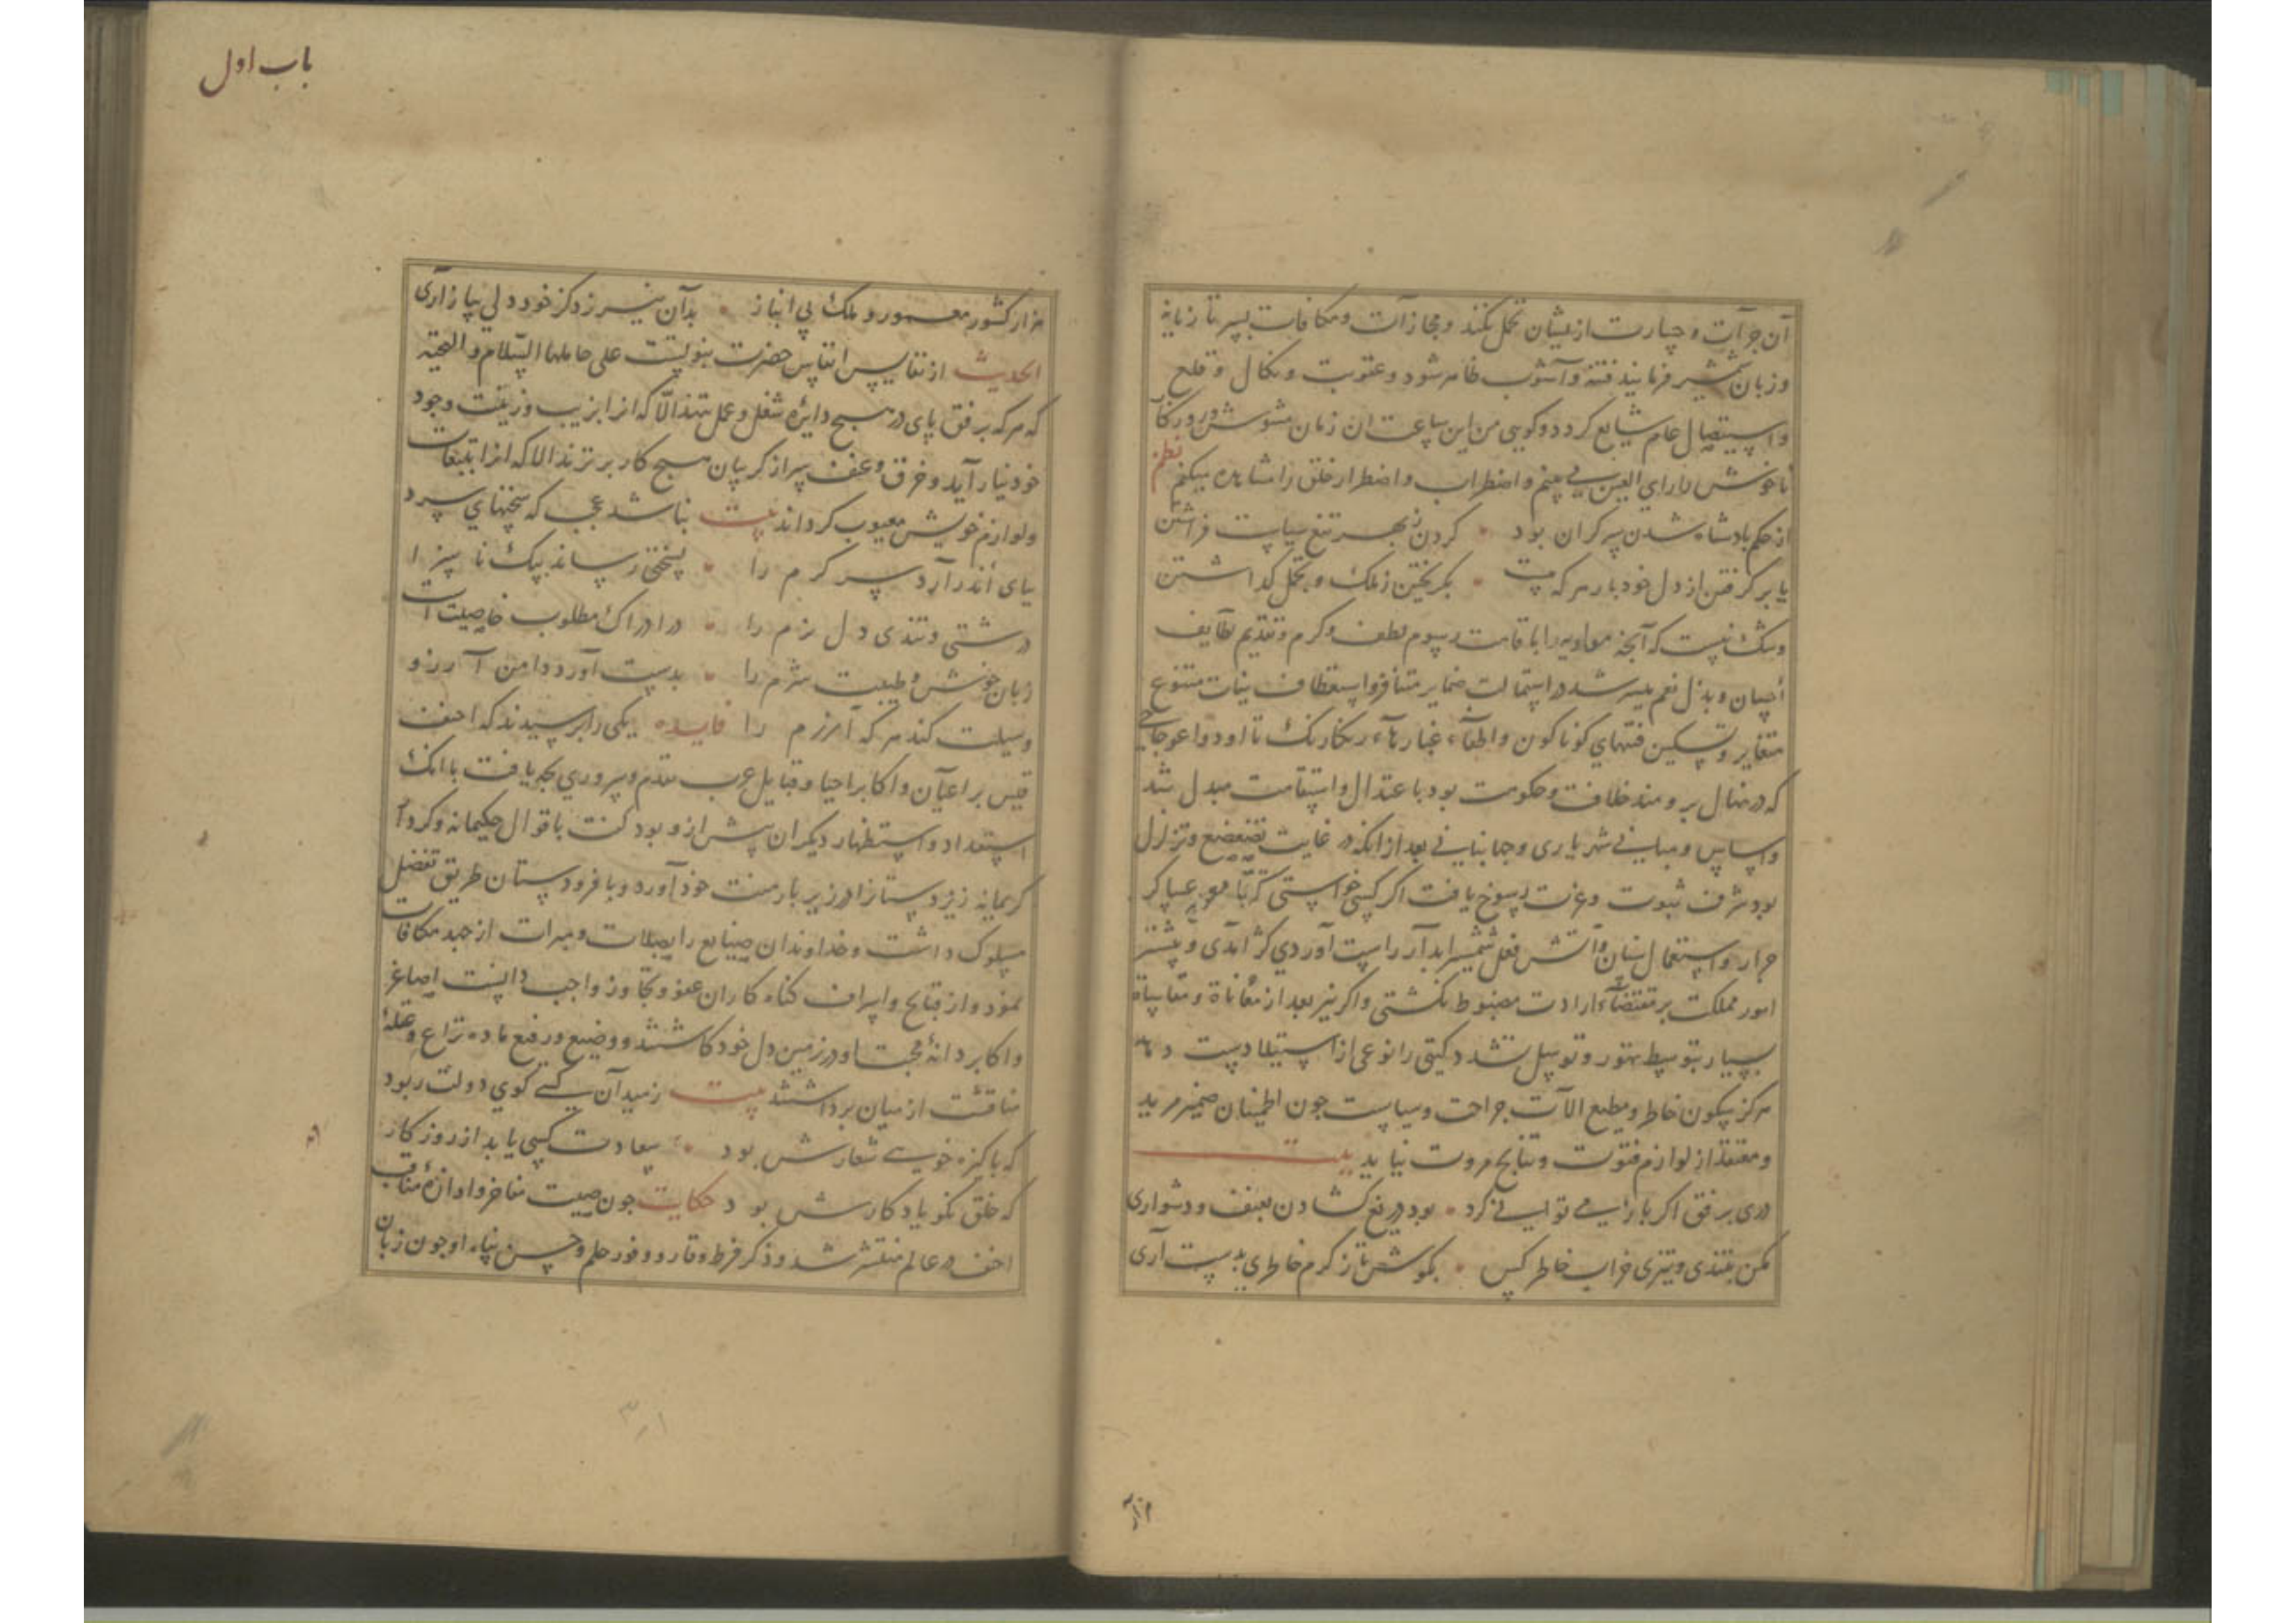 آن جرآت و جسارت ازیشان تحمل نکند و مجازات و مکافات بسر تازیانه
و زبان شمشیر فرمایند فتنه و آشوب ظاهر شود و عقوبت و نکال و قلع
و استیصال عام شایع کردد و کویی من این ساعت ان زمان مشوش و روزکار
ناخوش را رای العین می بینم و اضطراب و اضطرار خلق را مشاهده میکنم نظم
از حکم پادشاه شدن سر کران بود • کردن ز بهر تیغ سیاست فراشتن
یا بر کرفتن از دل خود بار هر که هست • بکریختن ز ملک و بتحمل کذاشتن
و شک نیست که آنچه معاویه را باقامت رسوم لطف و کرم و تقدیم لطایف
احسان و بذل نعم میسر شد در استمالت ضمایر متنافر و استعطاف نیات متنوع
متغایر و تسکین فتنهای کوناکون و اطفاء غبار رنکارنک تا اود و اعوجاجی
که در نهال برومند خلافت و حکومت بود باعتدال و استقامت مبدل شد
و اساس و مبانی شهریاری و جهانبانی بعد از انکه در غایت تضعضع و تزلزل
بود شرف ثبوت و عزت رسوخ یافت اکر کسی خواستی که بآ عساکر
جرار و استعمال سنان آتش فعل شمشیر ابدآر راست آوردی کژ آمدی و بیشتر
امور مملکت بر مقتضاء ارادت مضبوط نکشتی و اکر نیز بعد از معاناة و مقاساة
بسیار بتوسط تهور و توسل تشدد کیتی را نوعی از استیلا دست دهد
هرکز سکون خاطر و مطیع الآت جراحت و سیاست جون اطمینان ضمیر مرید
و معتقد از لوازم فتوت و نتایج مروت نیاید بیت
دری برفق اکر باز می توانی کرد • بود دریغ کشادن بعنف و دشواری
مکن بتندی و تیزی خراب خاطر کس • بکوش تا ز کرم خاطری بدست آری
هزار
باب اول
هزار کشور معمور و ملک بی انباز • بدآن نیرزد کز خود دلی بیازاری
الحدیث از نفایس انفاس حضرت نبویست علی حاملها السلام و التحیة
که هر که برفق پای در هیج دایره شغل و عمل ننهد الّا که انرا بزیب و زینت وجود
خود بیارآید و خرق و عنف سر از کریبان هیج کار بر نزند الا که انرا بتبعات
و لوازم خویش معیوب کرداند بیت نباشد عجب که سخنهای سرد
بپای اندرآرد سر کرم را • بسختی رساند سبک ناسزا
درشتی و تندی دل نرم را • در ادراک مطلوب خاصیت است
زبان خوش و طبیعت شرم را • بدست آورد دامن آرزو
وسیلت کند هر که آزرم را فایده یکی را پرسیدند که احنف
قیس بر اعیآن و اکابر احیا و قبایل عرب تقدم و سروری بچه یافت با انک
استعداد و استظهار دیکران بیش از و بود کفت باقوال حکیمانه و کردار
کریمانه زبردستانرا در زیر بار منت خود آورد و با فرودستان طریق تفضل
مسلوک داشت و خداوندان صنایع را بصلات و مبرات از جبد مکافات
نمود و از قبایح و اسراف کناه کاران عفو و تجاوز واجب دانست اصاغر
و اکابر دانۀ محبت او در زمین دل خود کاشتند و وضیع و رفیع ماده نزاع و علّۀ
مناقشت از میان برداشتند بیت ز میدآن کسی کوی دولت ربود
که پاکیزه خویی شعارش بود • سعادت کسی یابد از روزکار
که خلق نکو یادکارش بود حکایت جون صیت مفاخر و اوازه مناقب
احنف در عالم منتشر شد و ذکر فرط وقار و وفور حلم و حسن ثناء او جون زبان